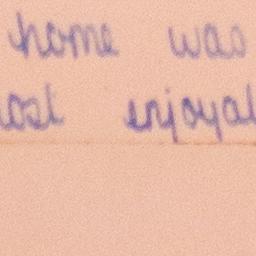 home was
most enjoyabl